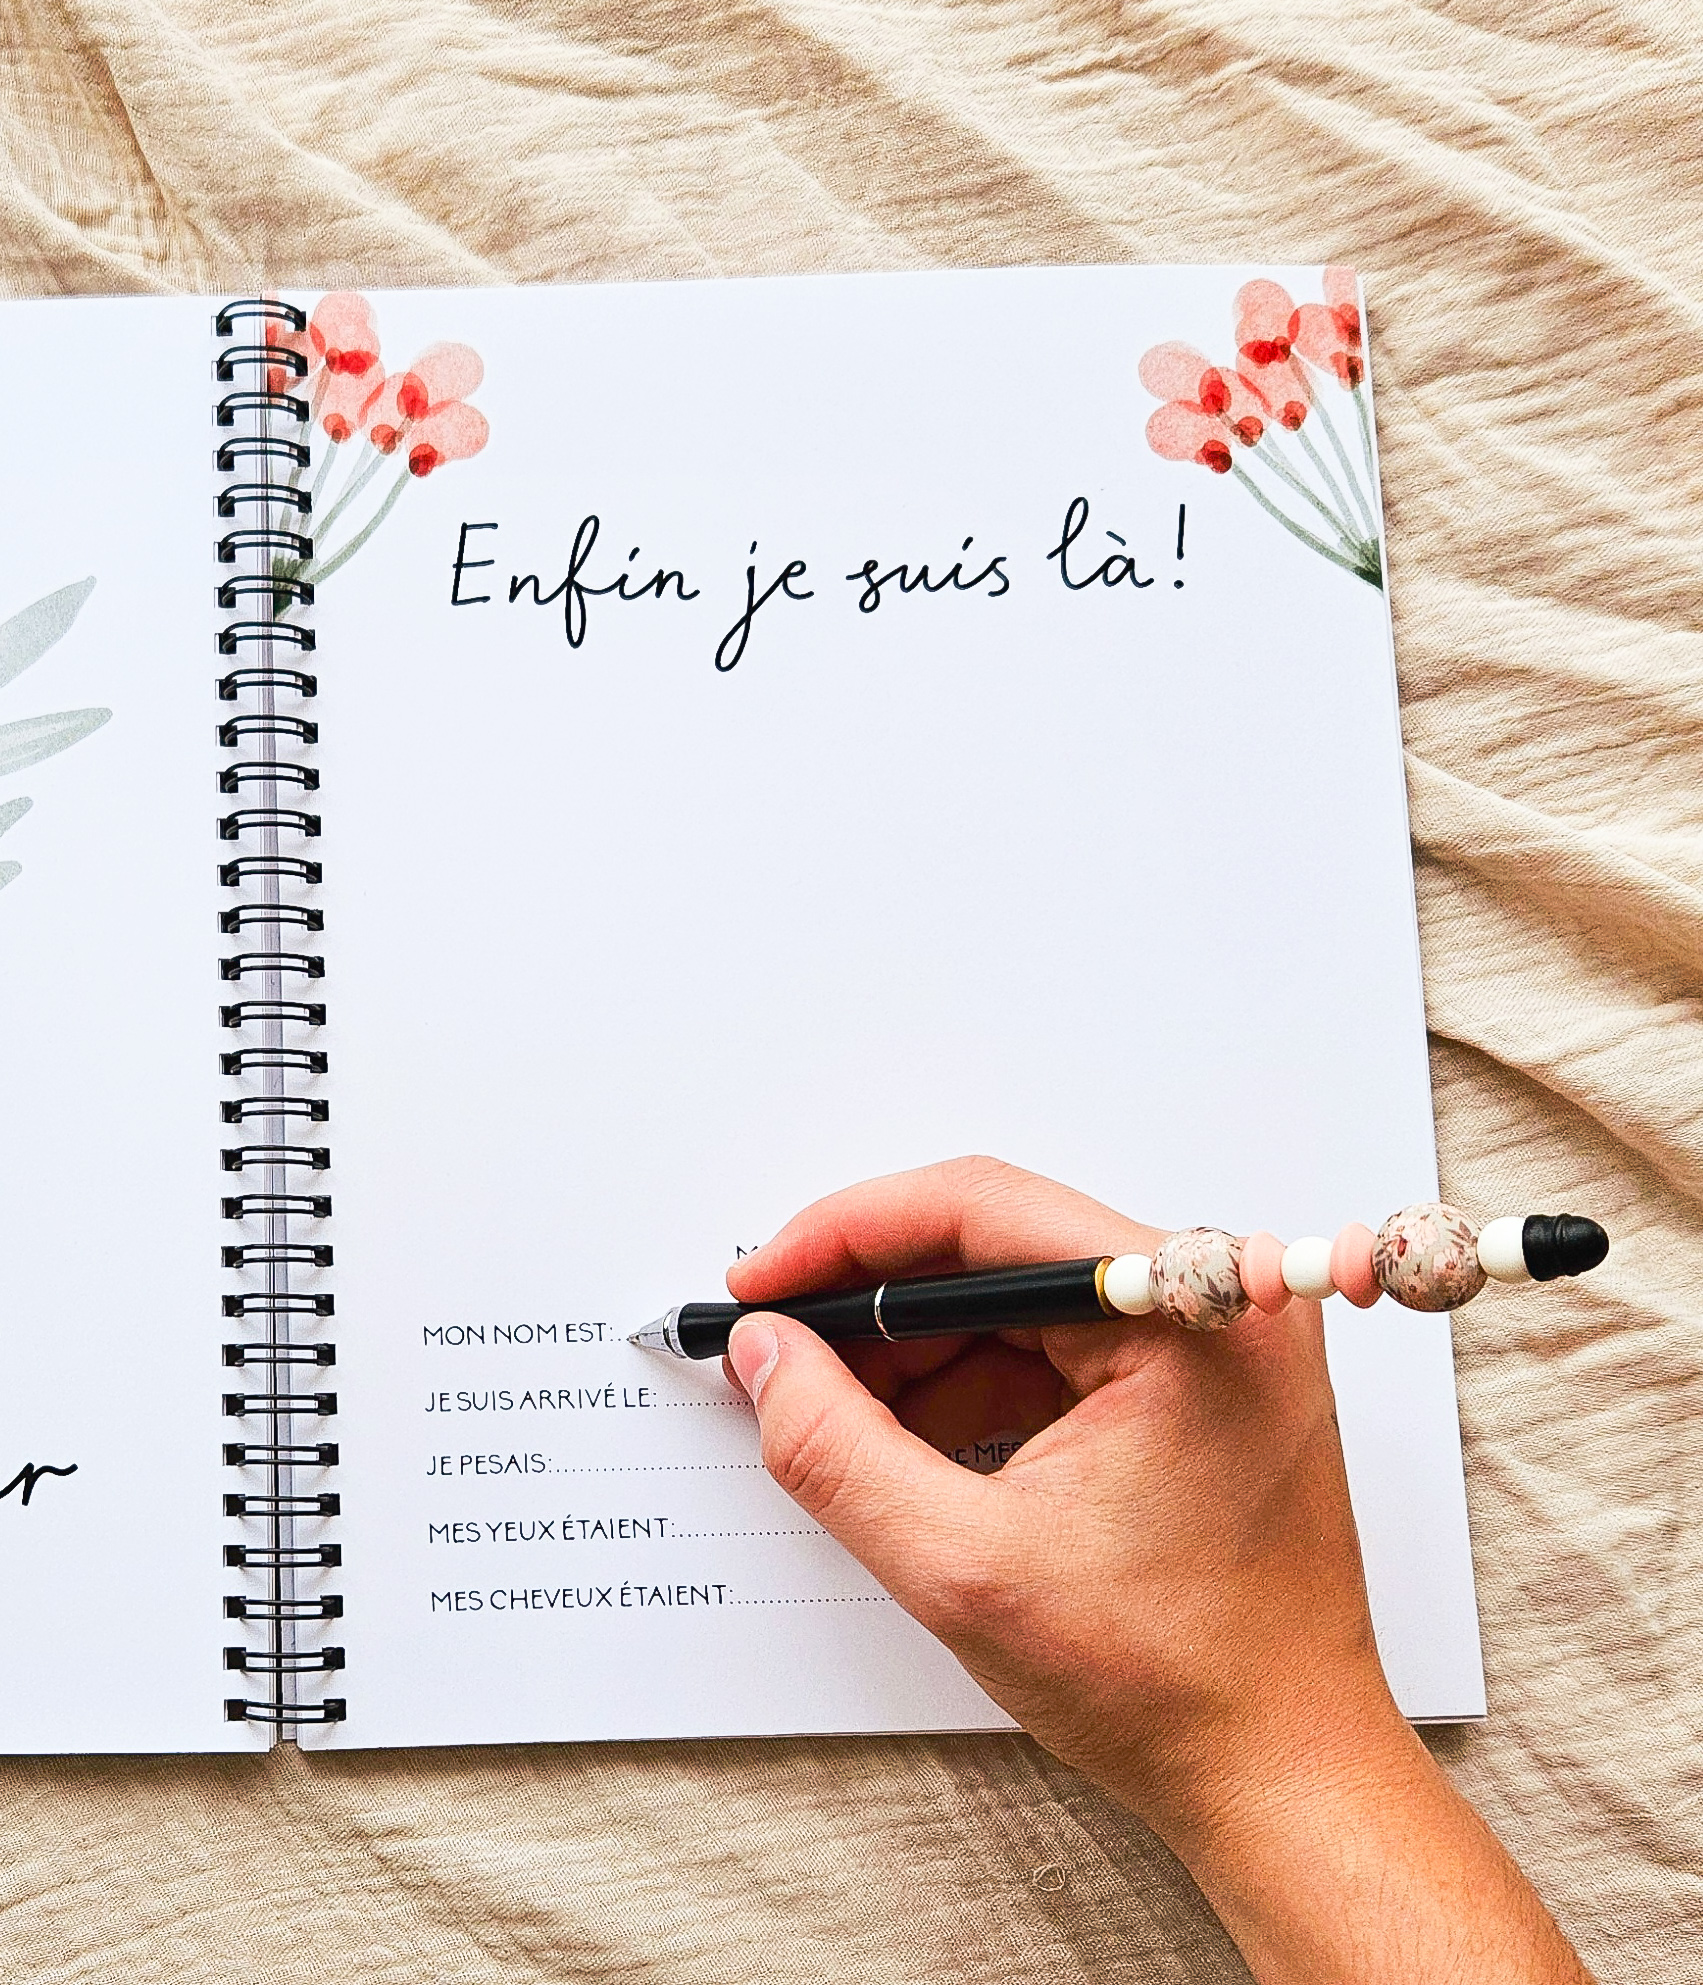 Enfin je suis là!
MON NOM EST:
JE SUIS ARRIVÉ LE:
JE PESAIS:
MES YEUX ÉTAIENT:
MES CHEVEUX ÉTAIENT: